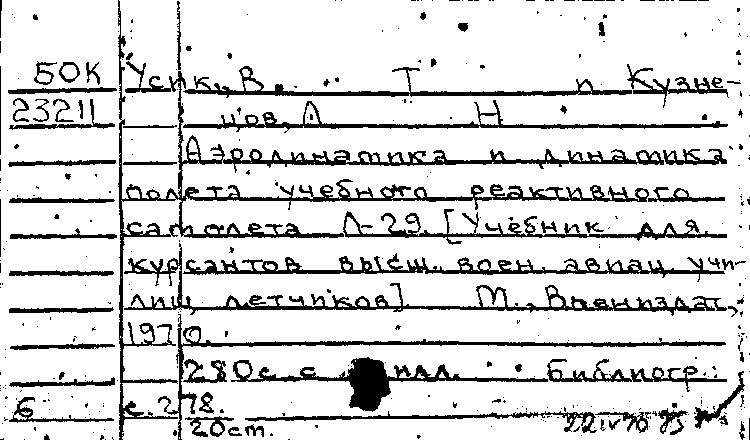 БОК Усик, В. Т и Кузне-
23211 цов, А Н
Аэродинамика и динамика
полета учебного реактивного
самолета Л-29. [Учебник для
курсантов высш. воен. авиац. учи-
лищ летчиков]. М., Воениздат,
1970.
280 с. с илл. Библиогр.:
6 с. 278.
20 см. 22 IV 70